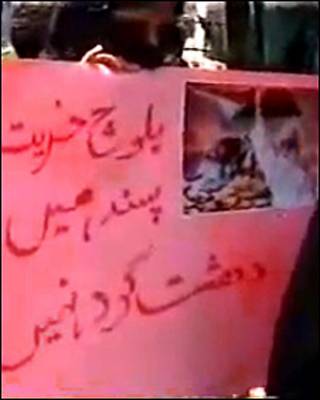 بلوچ حریت
پسند ہیں
دہشت گرد نہیں